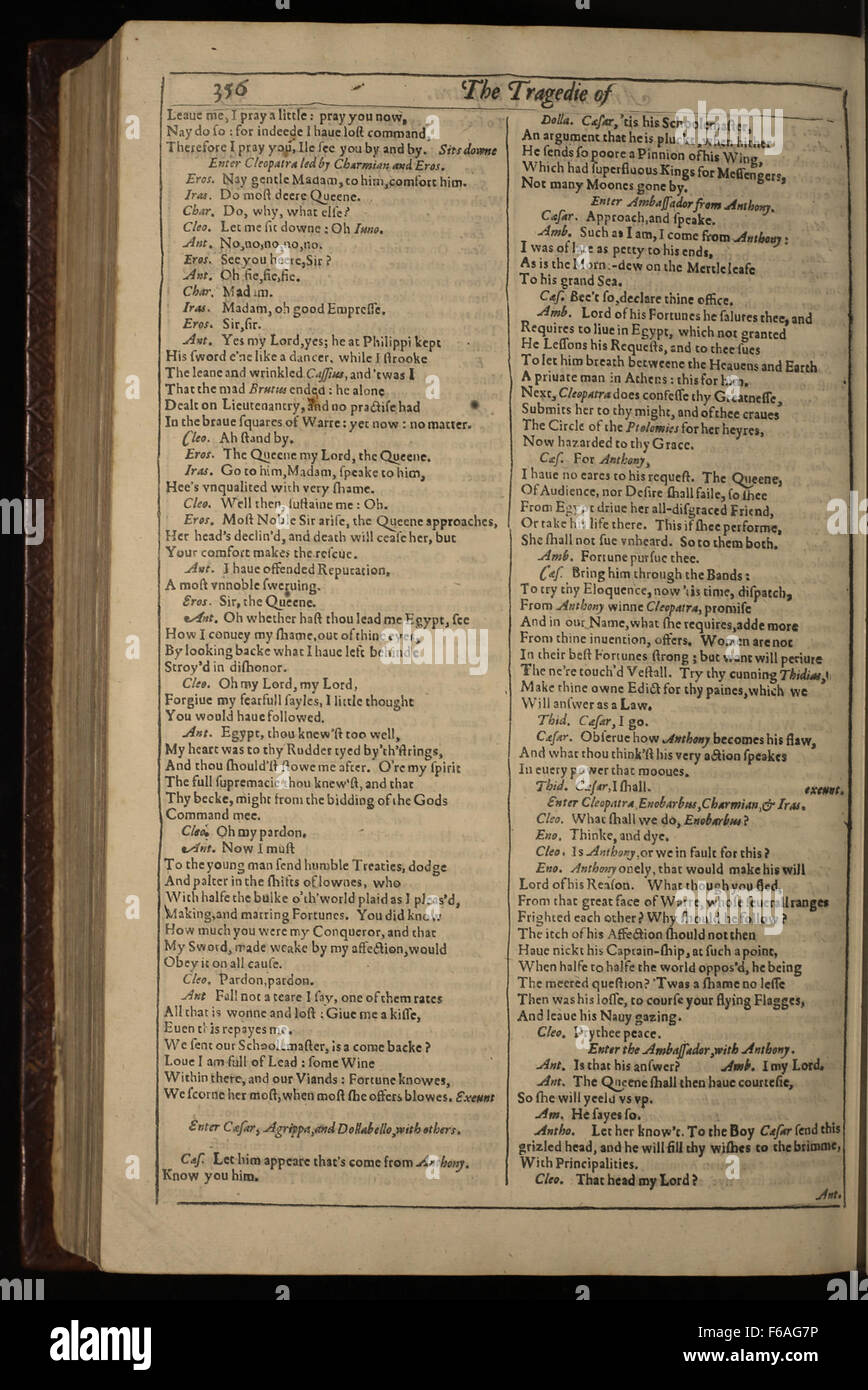 356
The Tragedie of
Leaue me, I pray a little: pray you now,
Nay do so: for indeede I haue lost command,
Therefore I pray you, Ile see you by and by. Sits downe
Enter Cleopatra led by Charmian and Eros.
Eros. Nay gentle Madam, to him, comfort him.
Iras. Do most deere Queene.
Char. Do, why, what else?
Cleo. Let me sit downe: Oh Iuno.
Ant. No, no, no, no, no.
Eros. See you heere, Sir?
Ant. Oh fie, fie, fie.
Char. Madam.
Iras. Madam, oh good Empresse.
Eros. Sir, sir.
Ant. Yes my Lord, yes; he at Philippi kept
His sword e'ne like a dancer, while I strooke
The leane and wrinkled Cassius, and 'twas I
That the mad Brutus ended: he alone
Dealt on Lieutenantry, and no practise had
In the braue squares of Warre: yet now: no matter.
Cleo. Ah stand by.
Eros. The Queene my Lord, the Queene.
Iras. Go to him, Madam, speake to him,
Hee's vnqualited with very shame.
Cleo. Well then, sustaine me: Oh.
Eros. Most Noble Sir arise, the Queene approaches,
Her head's declin'd, and death will cease her, but
Your comfort makes the rescue.
Ant. I haue offended Reputation,
A most vnnoble sweruing.
Eros. Sir, the Queene.
Ant. Oh whether hast thou lead me Egypt, see
How I conuey my shame, out of thine eyes,
By looking backe what I haue left behinde
Stroy'd in dishonor.
Cleo. Oh my Lord, my Lord,
Forgiue my fearfull sayles, I little thought
You would haue followed.
Ant. Egypt, thou knew'st too well,
My heart was to thy Rudder tyed by'th'strings,
And thou should'st stowe me after. O're my spirit
The full supremacie thou knew'st, and that
Thy becke, might from the bidding of the Gods
Command mee.
Cleo. Oh my pardon.
Ant. Now I must
To the young man send humble Treaties, dodge
And palter in the shifts of lownes, who
With halfe the bulke o'th'world plaid as I pleas'd,
Making, and marring Fortunes. You did know
How much you were my Conqueror, and that
My Sword, made weake by my affection, would
Obey it on all cause.
Cleo. Pardon, pardon.
Ant Fall not a teare I say, one of them rates
All that is wonne and lost: Giue me a kisse,
Euen this repayes me.
We sent our Schoolemaster, is a come backe?
Loue I am full of Lead: some Wine
Within there, and our Viands: Fortune knowes,
We scorne her most, when most she offers blowes. Exeunt
Enter Cæsar, Agrippa, and Dollabello, with others.
Cæs. Let him appeare that's come from Anthony.
Know you him.
Dolla. Cæsar, 'tis his Schoolemaster,
An argument that he is pluckt, when hither
He sends so poore a Pinnion of his Wing,
Which had superfluous Kings for Messengers,
Not many Moones gone by.
Enter Ambassador from Anthony.
Cæsar. Approach, and speake.
Amb. Such as I am, I come from Anthony:
I was of late as petty to his ends,
As is the Morne-dew on the Mertle leafe
To his grand Sea.
Cæs. Bee't so, declare thine office.
Amb. Lord of his Fortunes he salutes thee, and
Requires to liue in Egypt, which not granted
He Lessons his Requests, and to thee sues
To let him breath betweene the Heauens and Earth
A priuate man in Athens: this for him.
Next, Cleopatra does confesse thy Greatnesse,
Submits her to thy might, and of thee craues
The Circle of the Ptolomies for her heyres,
Now hazarded to thy Grace.
Cæs. For Anthony,
I haue no eares to his request. The Queene,
Of Audience, nor Desire shall faile, so shee
From Egypt driue her all-disgraced Friend,
Or take his life there. This if shee performe,
She shall not sue vnheard. So to them both.
Amb. Fortune pursue thee.
Cæs. Bring him through the Bands:
To try thy Eloquence, now 'tis time, dispatch,
From Anthony winne Cleopatra, promise
And in our Name, what she requires, adde more
From thine inuention, offers. Women are not
In their best Fortunes strong; but want will periure
The ne're touch'd Vestall. Try thy cunning Thidias,
Make thine owne Edict for thy paines, which we
Will answer as a Law.
Thid. Cæsar, I go.
Cæsar. Obserue how Anthony becomes his flaw,
And what thou think'st his very action speakes
In euery power that mooues.
Thid. Cæsar, I shall. exeunt.
Enter Cleopatra, Enobarbus, Charmian, & Iras.
Cleo. What shall we do, Enobarbus?
Eno. Thinke, and dye.
Cleo. Is Anthony, or we in fault for this?
Eno. Anthony onely, that would make his will
Lord of his Reason. What though you fled,
From that great face of Warre, whose seuerall ranges
Frighted each other? Why should he follow?
The itch of his Affection should not then
Haue nickt his Captain-ship, at such a point,
When halfe to halfe the world oppos'd, he being
The meered question? 'Twas a shame no lesse
Then was his losse, to course your flying Flagges,
And leaue his Nauy gazing.
Cleo. Prythee peace.
Enter the Ambassador, with Anthony.
Ant. Is that his answer? Amb. I my Lord.
Ant. The Queene shall then haue courtesie,
So she will yeeld vs vp.
Am. He sayes so.
Antho. Let her know't. To the Boy Cæsar send this
grizled head, and he will fill thy wishes to the brimme,
With Principalities.
Cleo. That head my Lord?
Ant.
alamy stock photo
F6AG7P
www.alamy.com